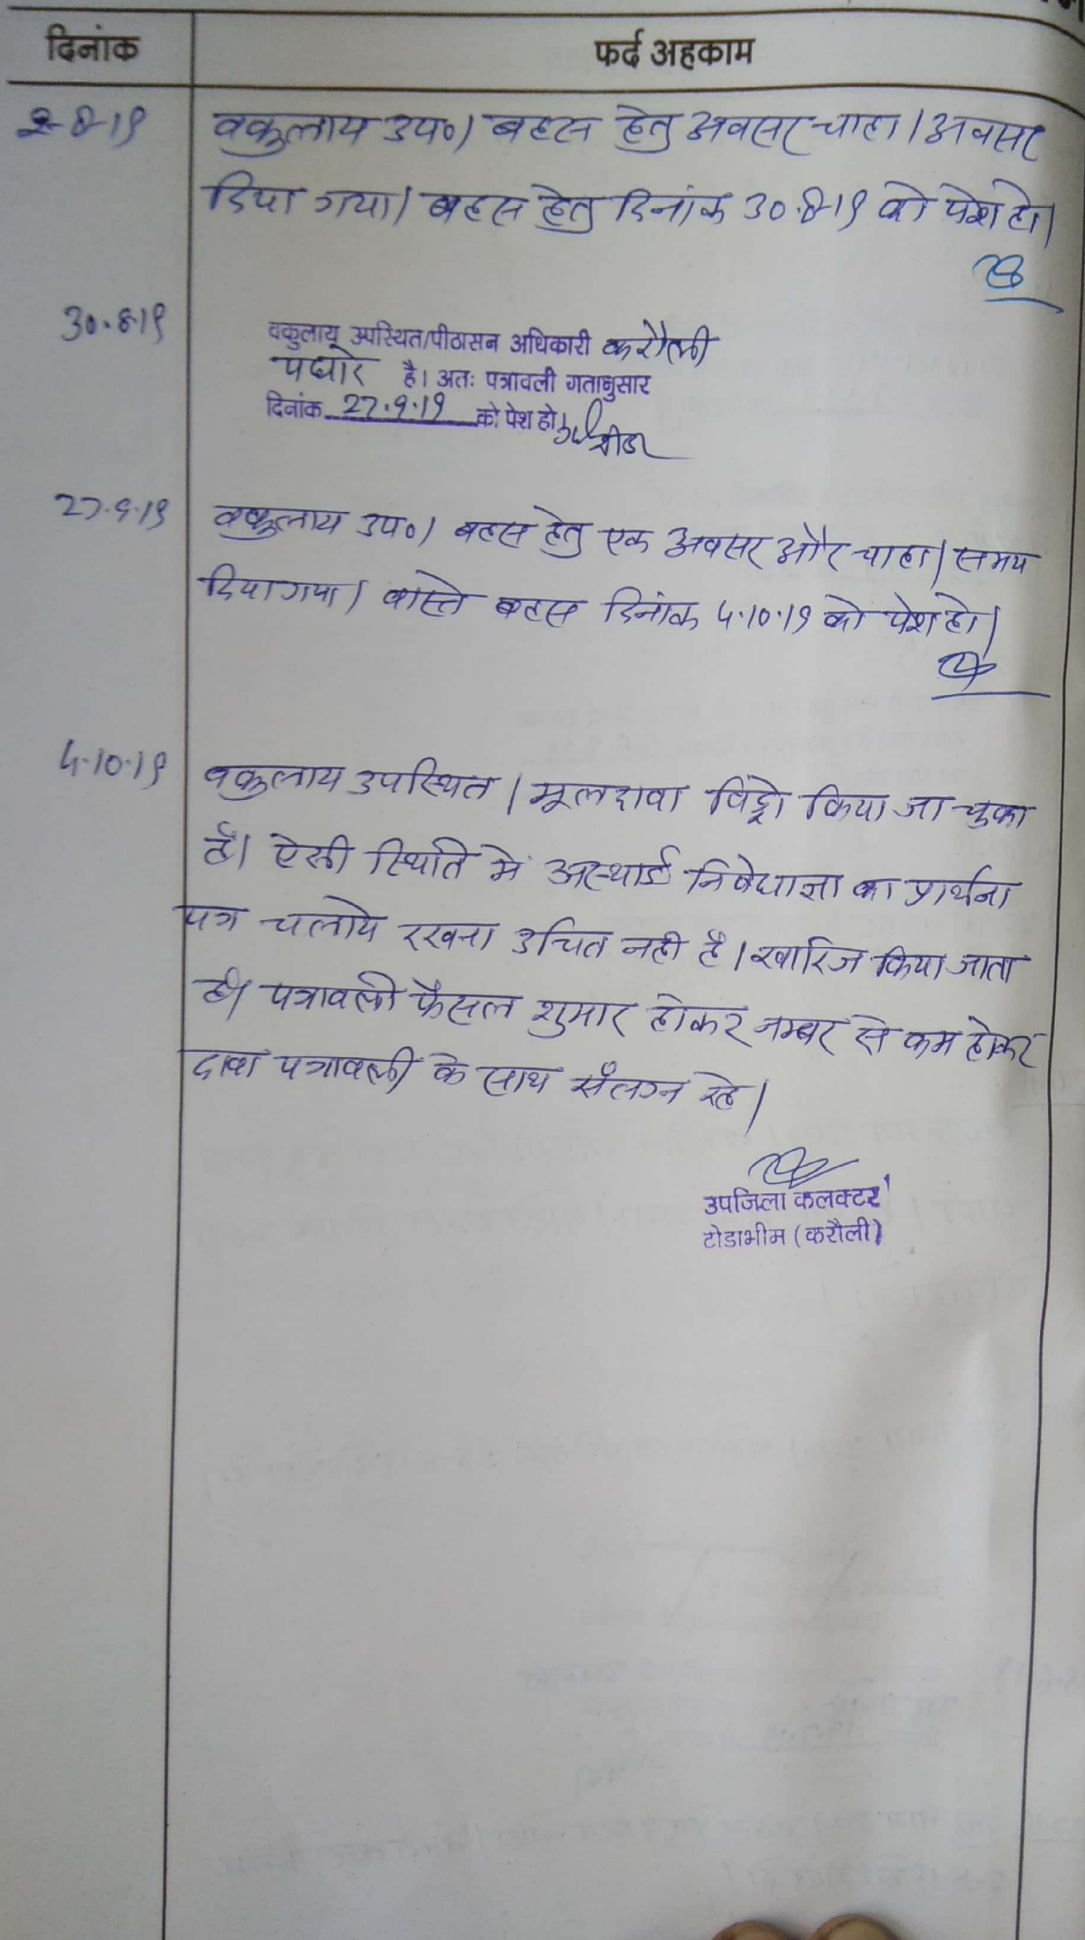 दिनांक
फर्द अहकाम
2-8-19
वकुलाय उप०। बहस हेतु अवसर चाहा। अवसर
दिया गया। बहस हेतु दिनांक 30.8.19 को पेश हो।
30.8.19
वकुलाय उपस्थित/पीठासन अधिकारी करौली
पधारे है। अतः पत्रावली गतानुसार
दिनांक 27.9.19 को पेश हो।
रीडर
27.9.19
वकुलाय उप०। बहस हेतु एक अवसर और चाहा। समय
दिया गया। वास्ते बहस दिनांक 4.10.19 को पेश हो।
4.10.19
वकुलाय उपस्थित। मूलदावा विड्रो किया जा चुका
है। ऐसी स्थिति में अस्थाई निषेधाज्ञा का प्रार्थना
पत्र चलाये रखना उचित नही है। खारिज किया जाता
है। पत्रावली फैसल शुमार होकर नम्बर से कम होकर
दावा पत्रावली के साथ सँलग्न रहे।
उपजिला कलक्टर
टोडाभीम (करौली)